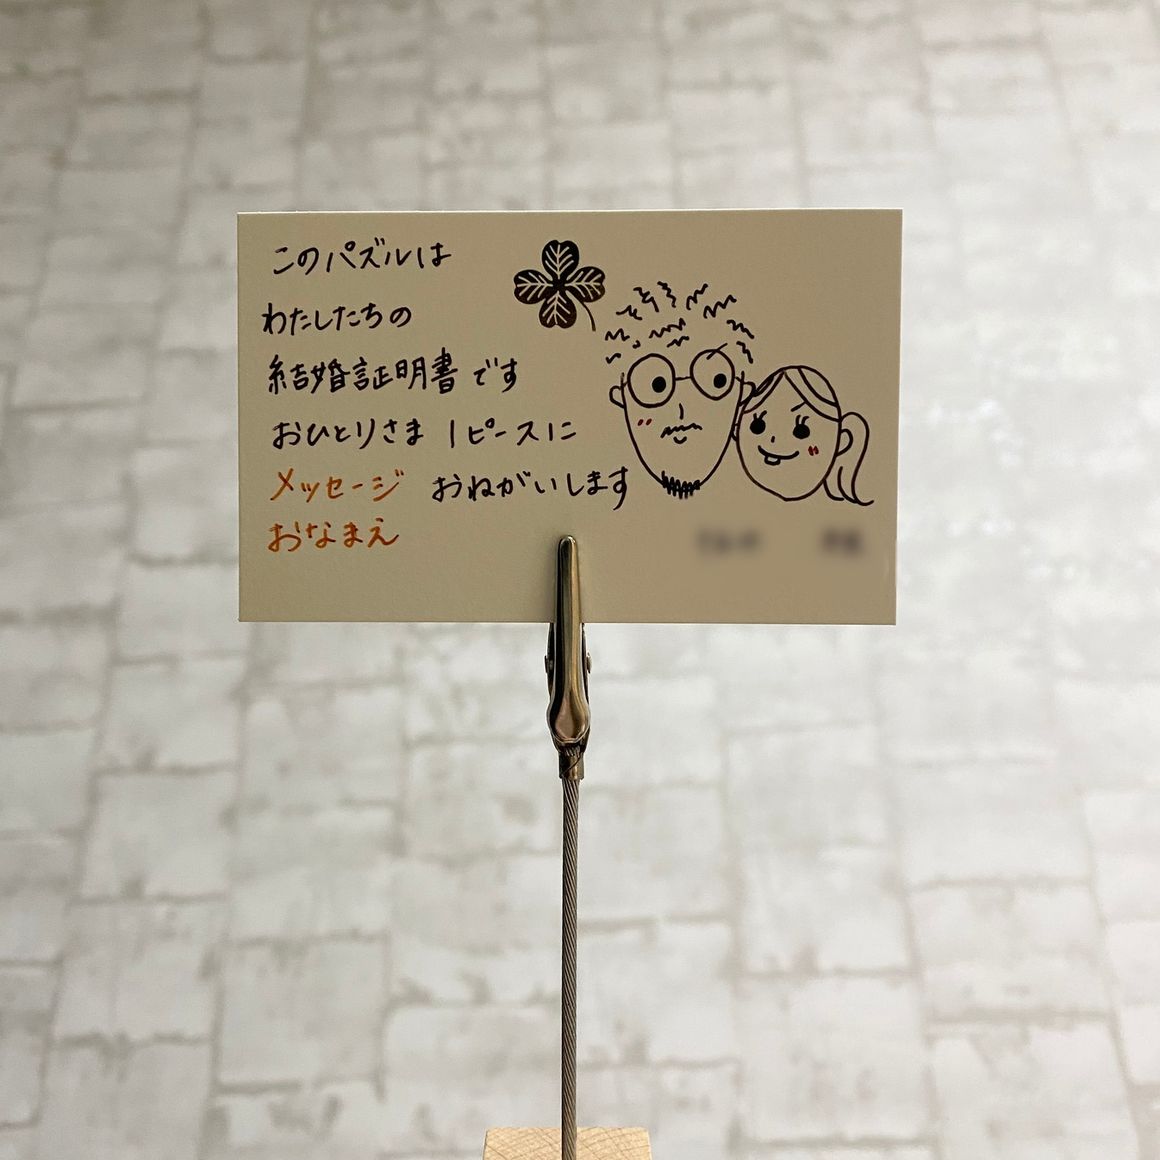 このパズルは
わたしたちの
結婚証明書です
おひとりさま 1ピースに
メッセージ おねがいします
おなまえ